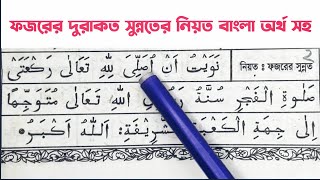 ফজরের দুরাকত সুন্নতের নিয়ত বাংলা অর্থ সহ
নিয়ত : ফজরের সুন্নত
نَوَيْتُ اَنْ اُصَلِّىَ لِلّٰهِ تَعَالٰى رَكْعَتَىْ
صَلٰوةِ الْفَجْرِ سُنَّةُ رَسُوْلِ اللّٰهِ تَعَالٰى مُتَوَجِّهًا
اِلٰى جِهَةِ الْكَعْبَةِ الشَّرِيْفَةِ : اَللّٰهُ اَكْبَرُ